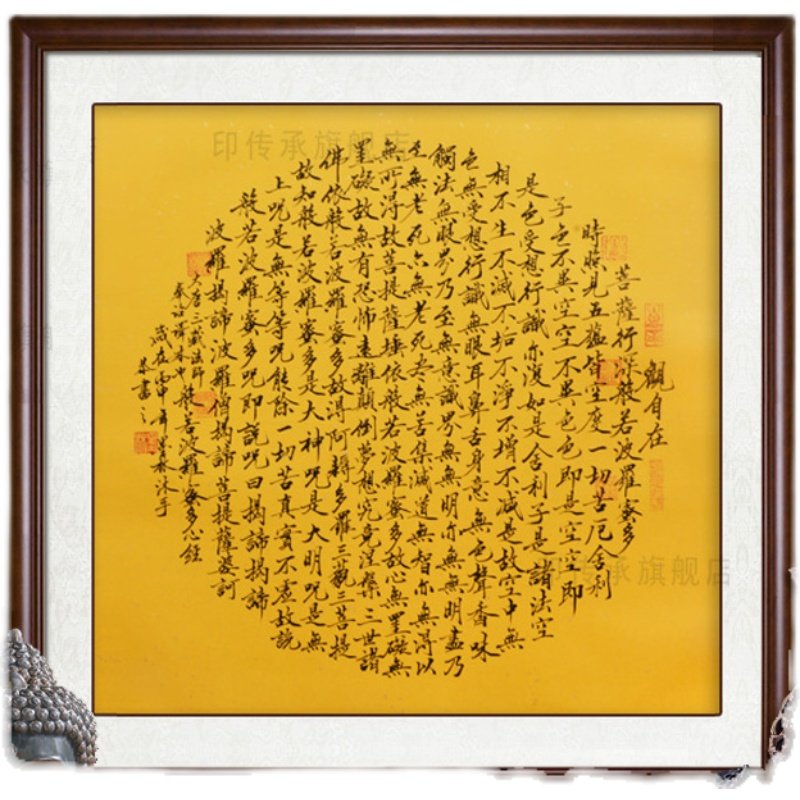 觀自在
菩薩行深般若波羅蜜多
時照見五蘊皆空度一切苦厄舍利
子色不異空空不異色色即是空空即
是色受想行識亦復如是舍利子是諸法空
相不生不滅不垢不淨不增不減是故空中無
色無受想行識無眼耳鼻舌身意無色聲香味
觸法無眼界乃至無意識界無無明亦無無明盡乃
至無老死亦無老死盡無苦集滅道無智亦無得以
無所得故菩提薩埵依般若波羅蜜多故心無罣礙無
罣礙故無有恐怖遠離顛倒夢想究竟涅槃三世諸
佛依般若波羅蜜多故得阿耨多羅三藐三菩提
故知般若波羅蜜多是大神咒是大明咒是無
上咒是無等等咒能除一切苦真實不虛故說
般若波羅蜜多咒即說咒曰揭諦揭諦
波羅揭諦波羅僧揭諦菩提薩婆訶
般若波羅蜜多心經
大唐三藏法師
奉詔譯
歲在丙申年春沐手
恭書之
印传承旗舰店
印传承旗舰店